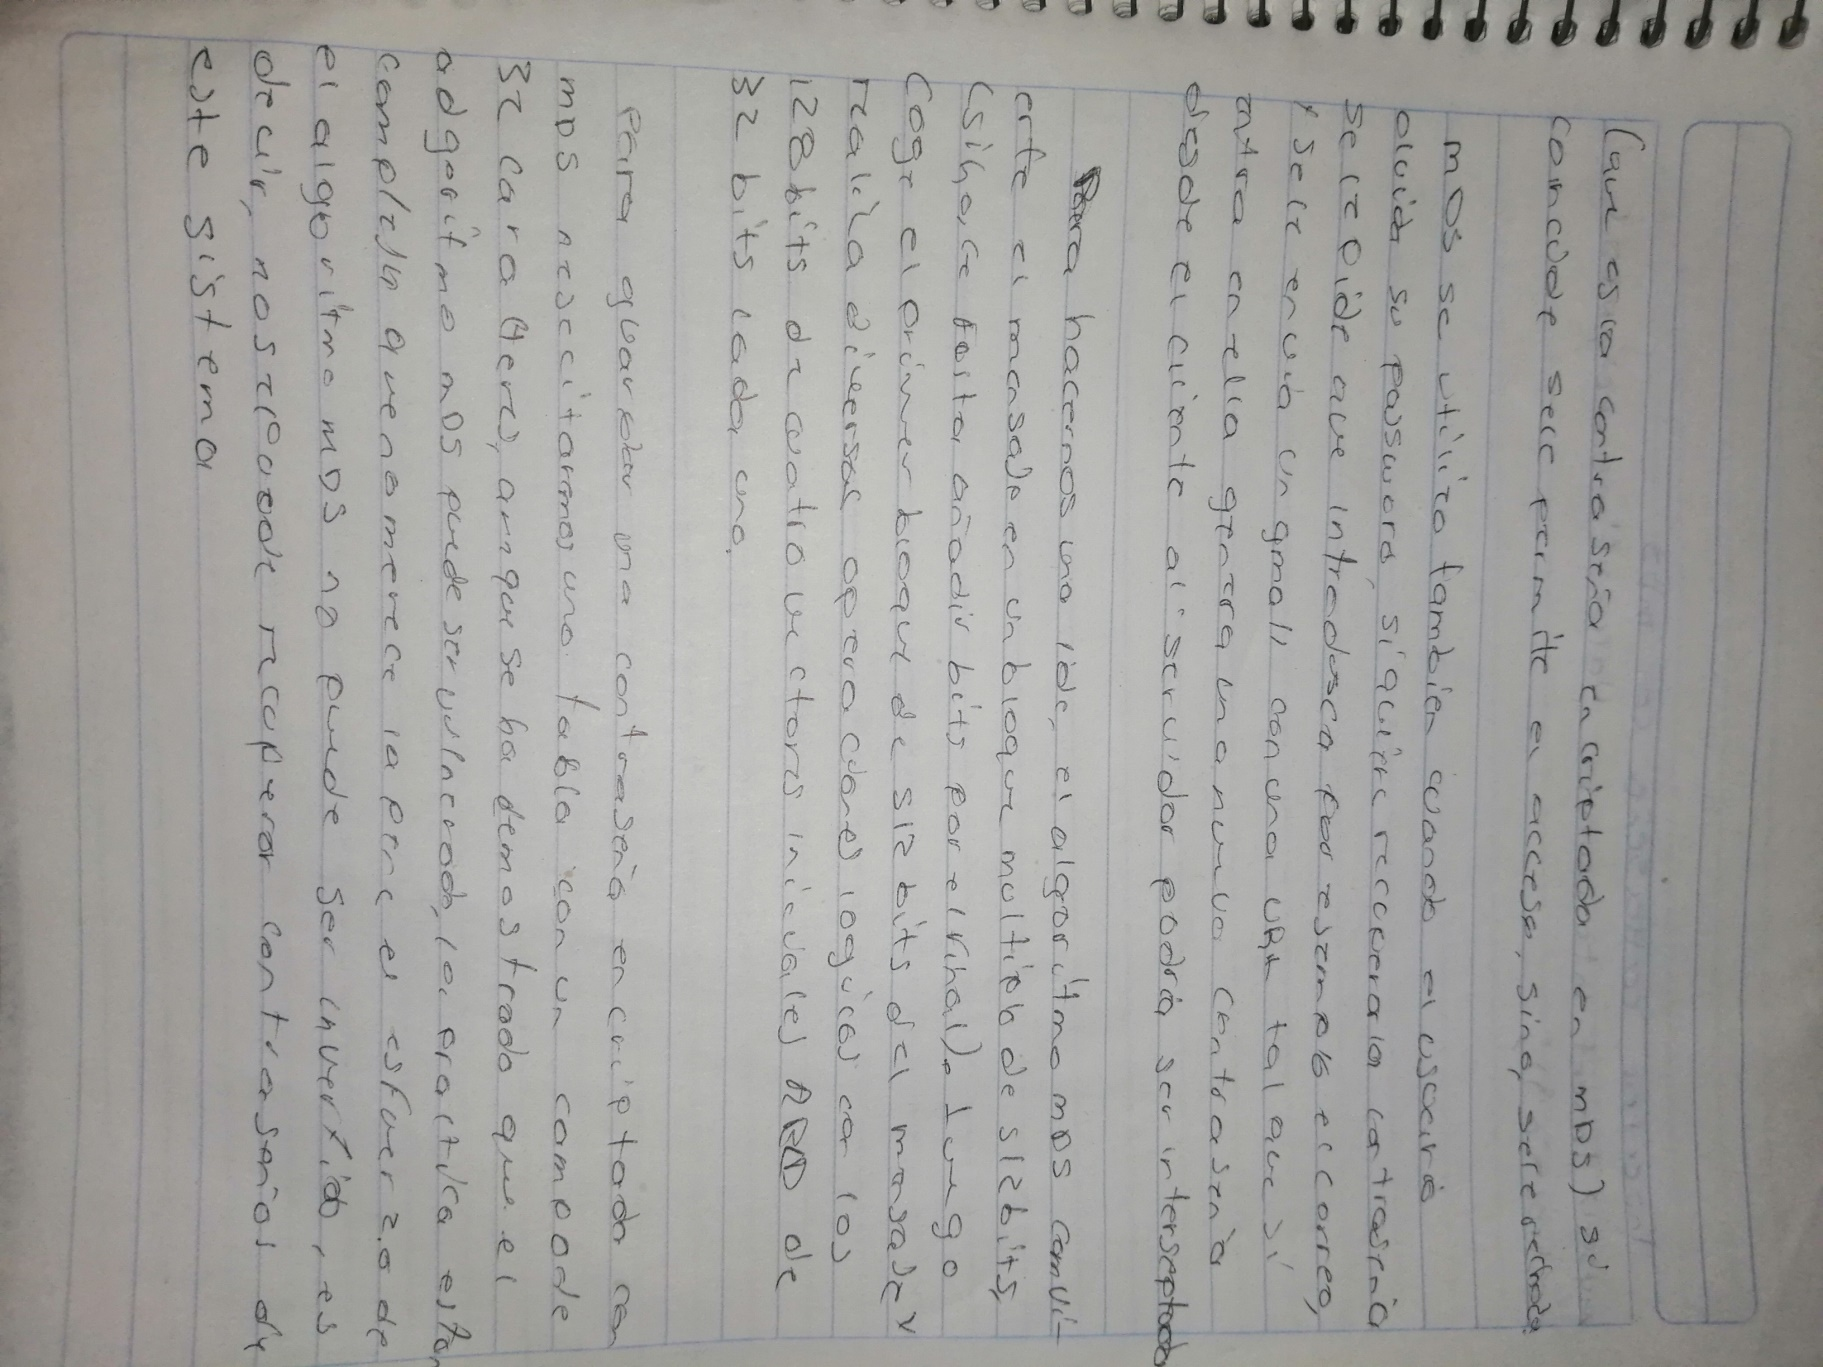 (que esta contraseña encriptada en mD5) si
coincide se le permite el acceso, sino, se le rechaza.
mD5 se utiliza tambien cuando el usuario
olvida su password, si quiere recuperar la contraseña
se le pide que introduzca por ejemplo el correo,
y se le envia un gmail con una URL tal que si
entra en ella genera una nueva contraseña
desde el cliente al servidor podria ser interseptado
Para hacernos una idea, el algoritmo mD5 convi-
erte el mensaje en un bloque multiplo de 512 bits,
(si hace falta añadir bits por el final). Luego
Coge el primer bloque de 512 bits del mensaje y
realiza diversas operaciones logicas con los
128 bits de cuatro vectores iniciales ABCD de
32 bits cada uno.
Para guardar una contraseña encriptada con
mD5 necesitamos una tabla con un campo de
32 caracteres, aunque se ha demostrado que el
adgoritmo mD5 puede ser vulnerado, la practica esta
complejn que no merece la pene el esfuerzo de
el algoritmo mD5 no puede ser invertido, es
decir, no se puede recuperar contraseñas de
este sistema